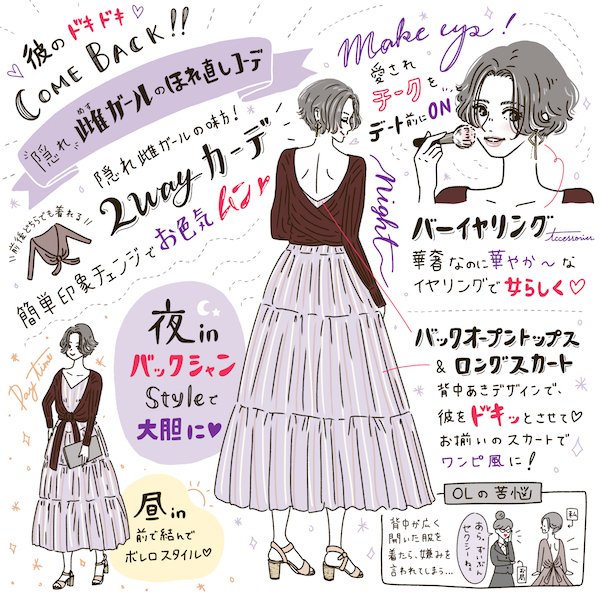 彼のドキドキ
COME BACK!!
隠れ雌ガールのほれ直しコーデ
めす
隠れ雌ガールの味方!
2wayカーデ
前後どちらでも着れる
簡単印象チェンジでお色気ムン♥
Make up!
愛され
チークを
デート前にON
Night
バーイヤリング
Accessories
華奢なのに華やか〜な
イヤリングで女らしく♡
夜in
バックシャン
Styleで
大胆に♥
バックオープントップス
&ロングスカート
背中あきデザインで、
彼をドキッとさせて♡
お揃いのスカートで
ワンピ風に!
Day time
昼in
前で結んで
ボレロスタイル♡
OLの苦悩
背中が広く
開いた服を
着たら、嫌みを
言われてしまう…
あら、ずいぶん
セクシーね。
私
お局